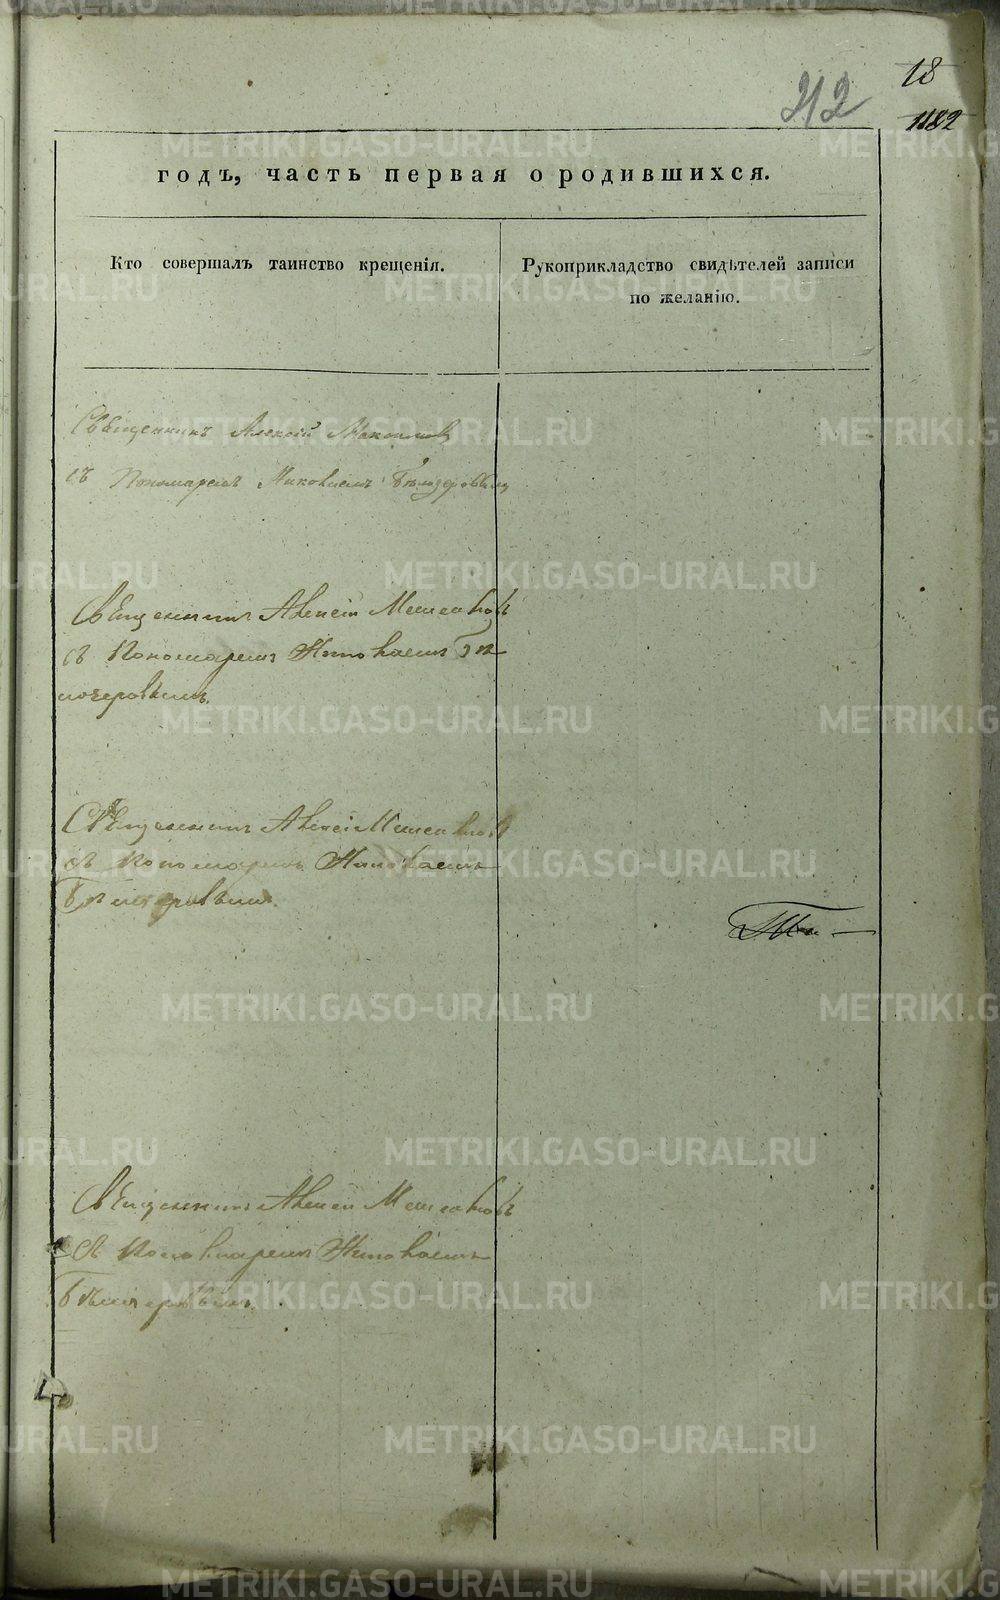 18
212
1182
годъ, часть первая о родившихся.
Кто совершалъ таинство крещенія.
Рукоприкладство свидѣтелей записи
по желанію.
Священникъ Алексій
съ Пономаремъ Николаемъ Бѣлозеровымъ
Священникъ Алексій
съ Пономаремъ Николаемъ Бѣ
лозеровымъ.
Священникъ Алексій
съ Пономаремъ Николаемъ
Бѣлозеровымъ.
Священникъ Алексій
съ Пономаремъ Николаемъ
Бѣлозеровымъ.
METRIKI.GASO-URAL.RU